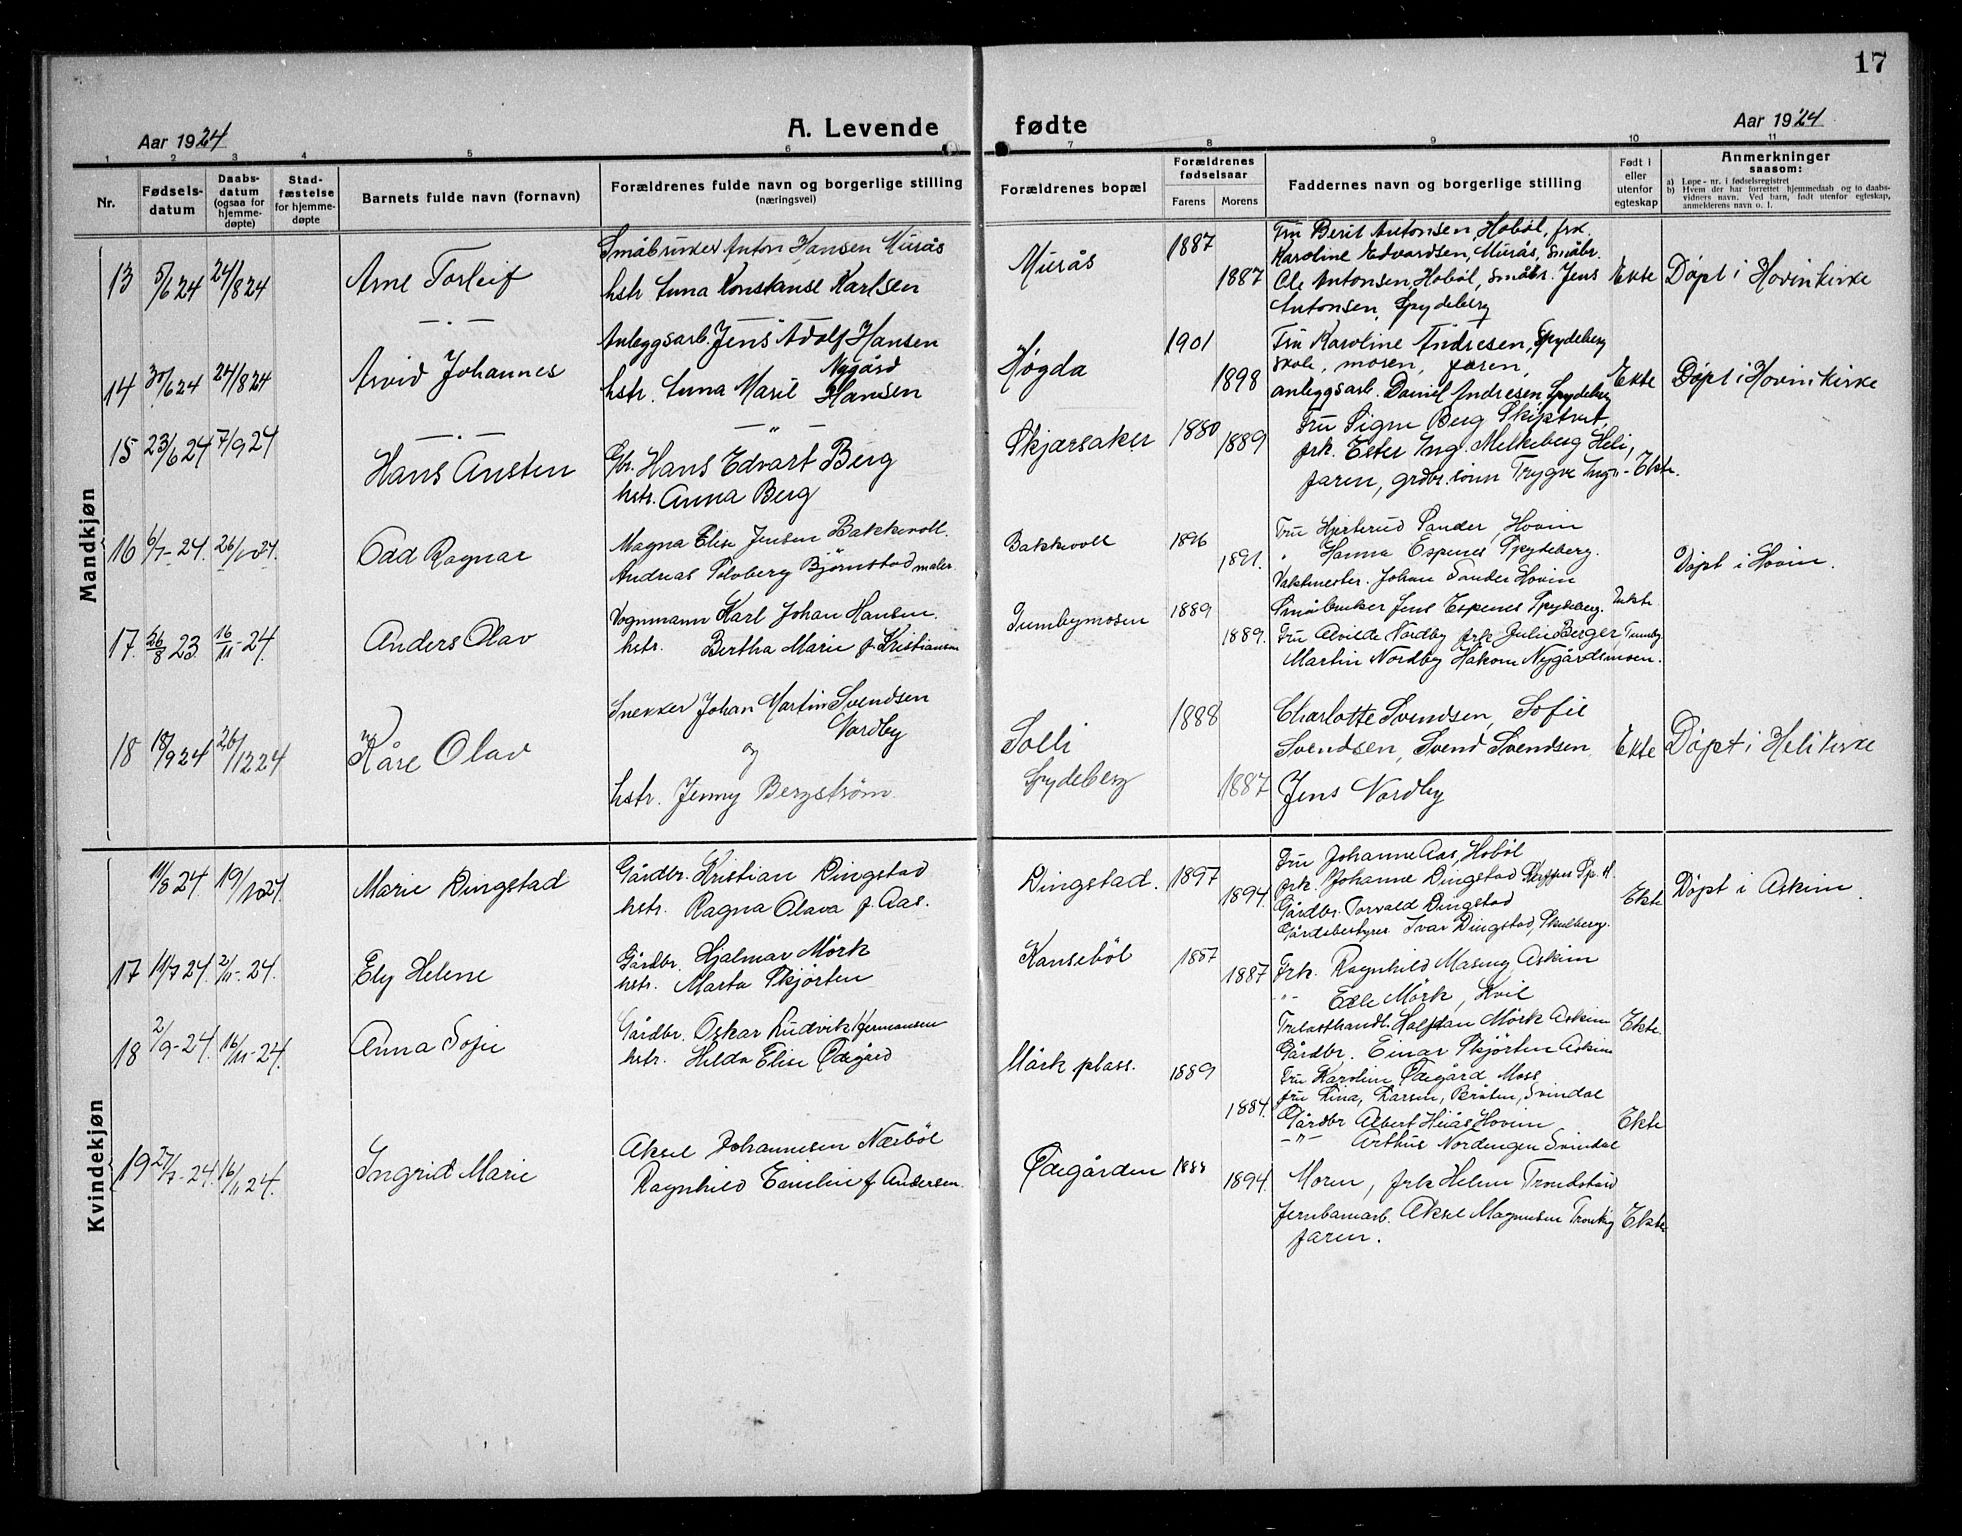 17
Aar 1924
A. Levende
fødte
Aar 1924
1 2 3 4 5 6 7 8 9 10 11
Nr.
Fødsels-
datum
Daabs-
datum
(ogsaa for
hjemme-
døpte)
Stad-
fæstelse
for hjemme-
døpte
Barnets fulde navn (fornavn)
Forældrenes fulde navn og borgerlige stilling
(næringsvei)
Forældrenes bopæl
Forældrenes
fødselsaar
Farens
Morens
Faddernes navn og borgerlige stilling
Født i
eller
utenfor
egteskap
Anmerkninger
saasom:
a) Løpe-nr. i fødselsregistret
b) Hvem der har forrettet hjemmedaab og to daabs-
vidners navn. Ved barn, født utenfor egteskap,
anmelderens navn o. l.
Mandkjøn
13 5/6 24 24/8 24
Arne Torleif
Småbruker Anton Hansen Murås
hstr Anna Konstanse Karlsen
Murås
1887
1887
Fru Berit Antonsen, Hobøl, frk.
Karoline Edvardsen, Murås, småbr.
Ole Antonsen, Hobøl, småbr. Jens
Antonsen, Spydeberg
Ekte
Døpt i Hovin kirke
14 30/6 24 24/8 24
Arvid Johannes
Anleggsarb. Jens Adolf Hansen
Nygård
hstr. Anna Maril Hansen
Høgda
1901
1898
Fru Karoline Andresen, Spydeberg
skole, moren, faren,
anleggsarb. Daniel Andresen, Spydeberg
Ekte
Døpt i Hovin kirke
15 23/6 24 7/9 24
Hans Austen
Gbr. Hans Edvart Berg
hstr. Anna Berg
Skjærsaker
1880
1889
Fru Signe Berg Skiptvet,
frk. Ester Ing. Melkeberg Heli,
faren, grdbr. sønn Trygve Ing.
Ekte.
16 6/7-24. 26/10 24.
Odd Ragnar
Magna Elise Jensen Bakkevoll
Andreas Solberg Björnstad maler.
Bakkevoll
1896
1891.
Fru Hjertrud Sander, Hovin
" Hanna Espenes Spydeberg.
Vaktmester. Johan Sander Hovin
Småbruker Jens Espenes Spydeberg.
Uekte
Döpt i Hovin.
17. 26/8 23 16/11-24.
Anders Olav
Vognmann Karl Johan Hansen.
hstr. Bertha Marie f. Kristiansen
Tumbymosen
1889
1889.
Fru Alvilde Nordby frk Julie Berger, Tumby
Martin Nordby Håkon Nygårdsmosen.
18 18/9 24 26/12 24
Kåre Olav
Snekker Johan Martin Svendsen
Nordby
og
hstr. Jenny Bergstrøm.
Solli
Spydeberg
1888
1887
Charlotte Svendsen, Sofie
Svendsen, Svend Svendsen
Jens Nordby
Ekte
Døpt i Heli kirke
Kvindekjøn
11/8 24 19/10 24.
Marie Dingstad
Gårdbr. Kristian Dingstad
hstr. Ragna Olava f. Aas.
Dingstad.
1897
1894
Fru Johanne Aas, Hobøl
Frk. Johanne Dingstad
Gårdbr. Torvald Dingstad
Gårdsbestyrer Ivar Dingstad, Skulberg.
Ekte
Döpt i Askim
17 11/7 24. 2/11-24.
Ely Helene
Gårdbr. Hjalmar Mörk
hstr. Marta Skjörten
Kansebøl
1887
1887
Frk. Ragnhild Masing Askim
" Edle Mörk, Kvil
Trelasthandl. Halfdan Mörk Askim
Gårdbr. Einar Skjörten Askim
Ekte.
18 2/9-24. 16/11-24.
Anna Sofie
Gårdbr. Oskar Ludvik Hermansen
hstr. Hilda Elise Ødegård
Mörk plass.
1889
1884.
Fru Karoline Ødegård Moss
fru Lina Larsen, Svindal
Gårdbr Albert Hiiås Hovin
-"- Arthur Nordengen Svindal
Ekte
19 27/7-24. 16/11 24.
Ingrid Marie
Aksel Johannesen Næsböl
Ragnhild Emilie f Andersen.
Ødegården
1888
1894
Moren, frk Helene Trondstad
Jernbanearb. Aksel Magnusen
faren.
Ekte